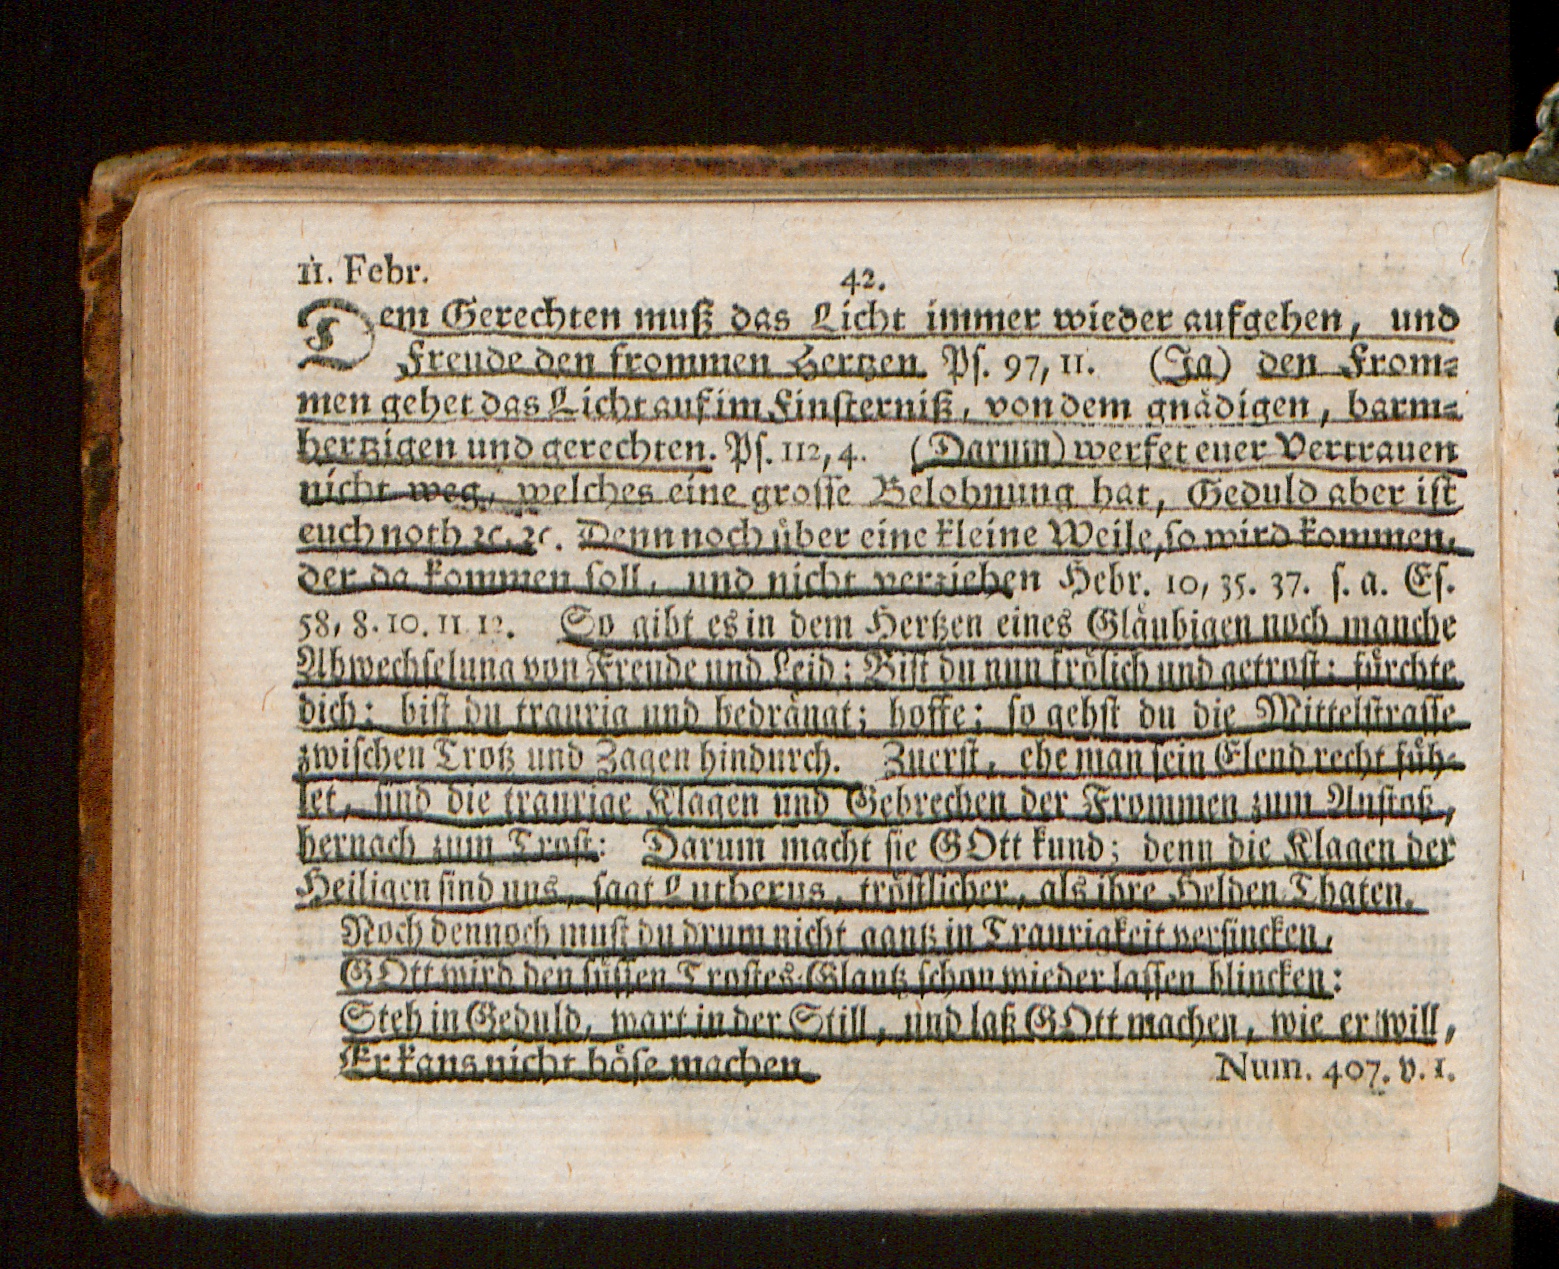 11. Febr. 42.
Dem Gerechten muß das Licht immer wieder aufgehen, und
Freude den frommen Hertzen. Ps. 97, 11. (Ja) den From-
men gehet das Licht auf im Finsterniß, von dem gnädigen, barm-
hertzigen und gerechten. Ps. 112, 4. (Darum) werfet euer Vertrauen
nicht weg, welches eine grosse Belohnung hat, Geduld aber ist
euch noth ꝛc. ꝛc. Denn noch über eine kleine Weile, so wird kommen,
der da kommen soll, und nicht verziehen Hebr. 10, 35. 37. s. a. Es.
58, 8. 10. 11. 12. So gibt es in dem Hertzen eines Gläubigen noch manche
Abwechselung von Freude und Leid: Bist du nun frölich und getrost: fürchte
dich: bist du traurig und bedrängt; hoffe: so gehst du die Mittelstrasse
zwischen Trotz und Zagen hindurch. Zuerst, ehe man sein Elend recht füh-
let, sind die traurige Klagen und Gebrechen der Frommen zum Anstoß,
hernach zum Trost: Darum macht sie GOtt kund; denn die Klagen der
Heiligen sind uns, sagt Lutherus, tröstlicher, als ihre Helden-Thaten.
Noch dennoch must du drum nicht gantz in Traurigkeit versincken,
GOtt wird den süssen Trostes-Glantz schon wieder lassen blincken:
Steh in Geduld, wart in der Still, und laß GOtt machen, wie er will,
Er kans nicht böse machen. Num. 407. v. 1.